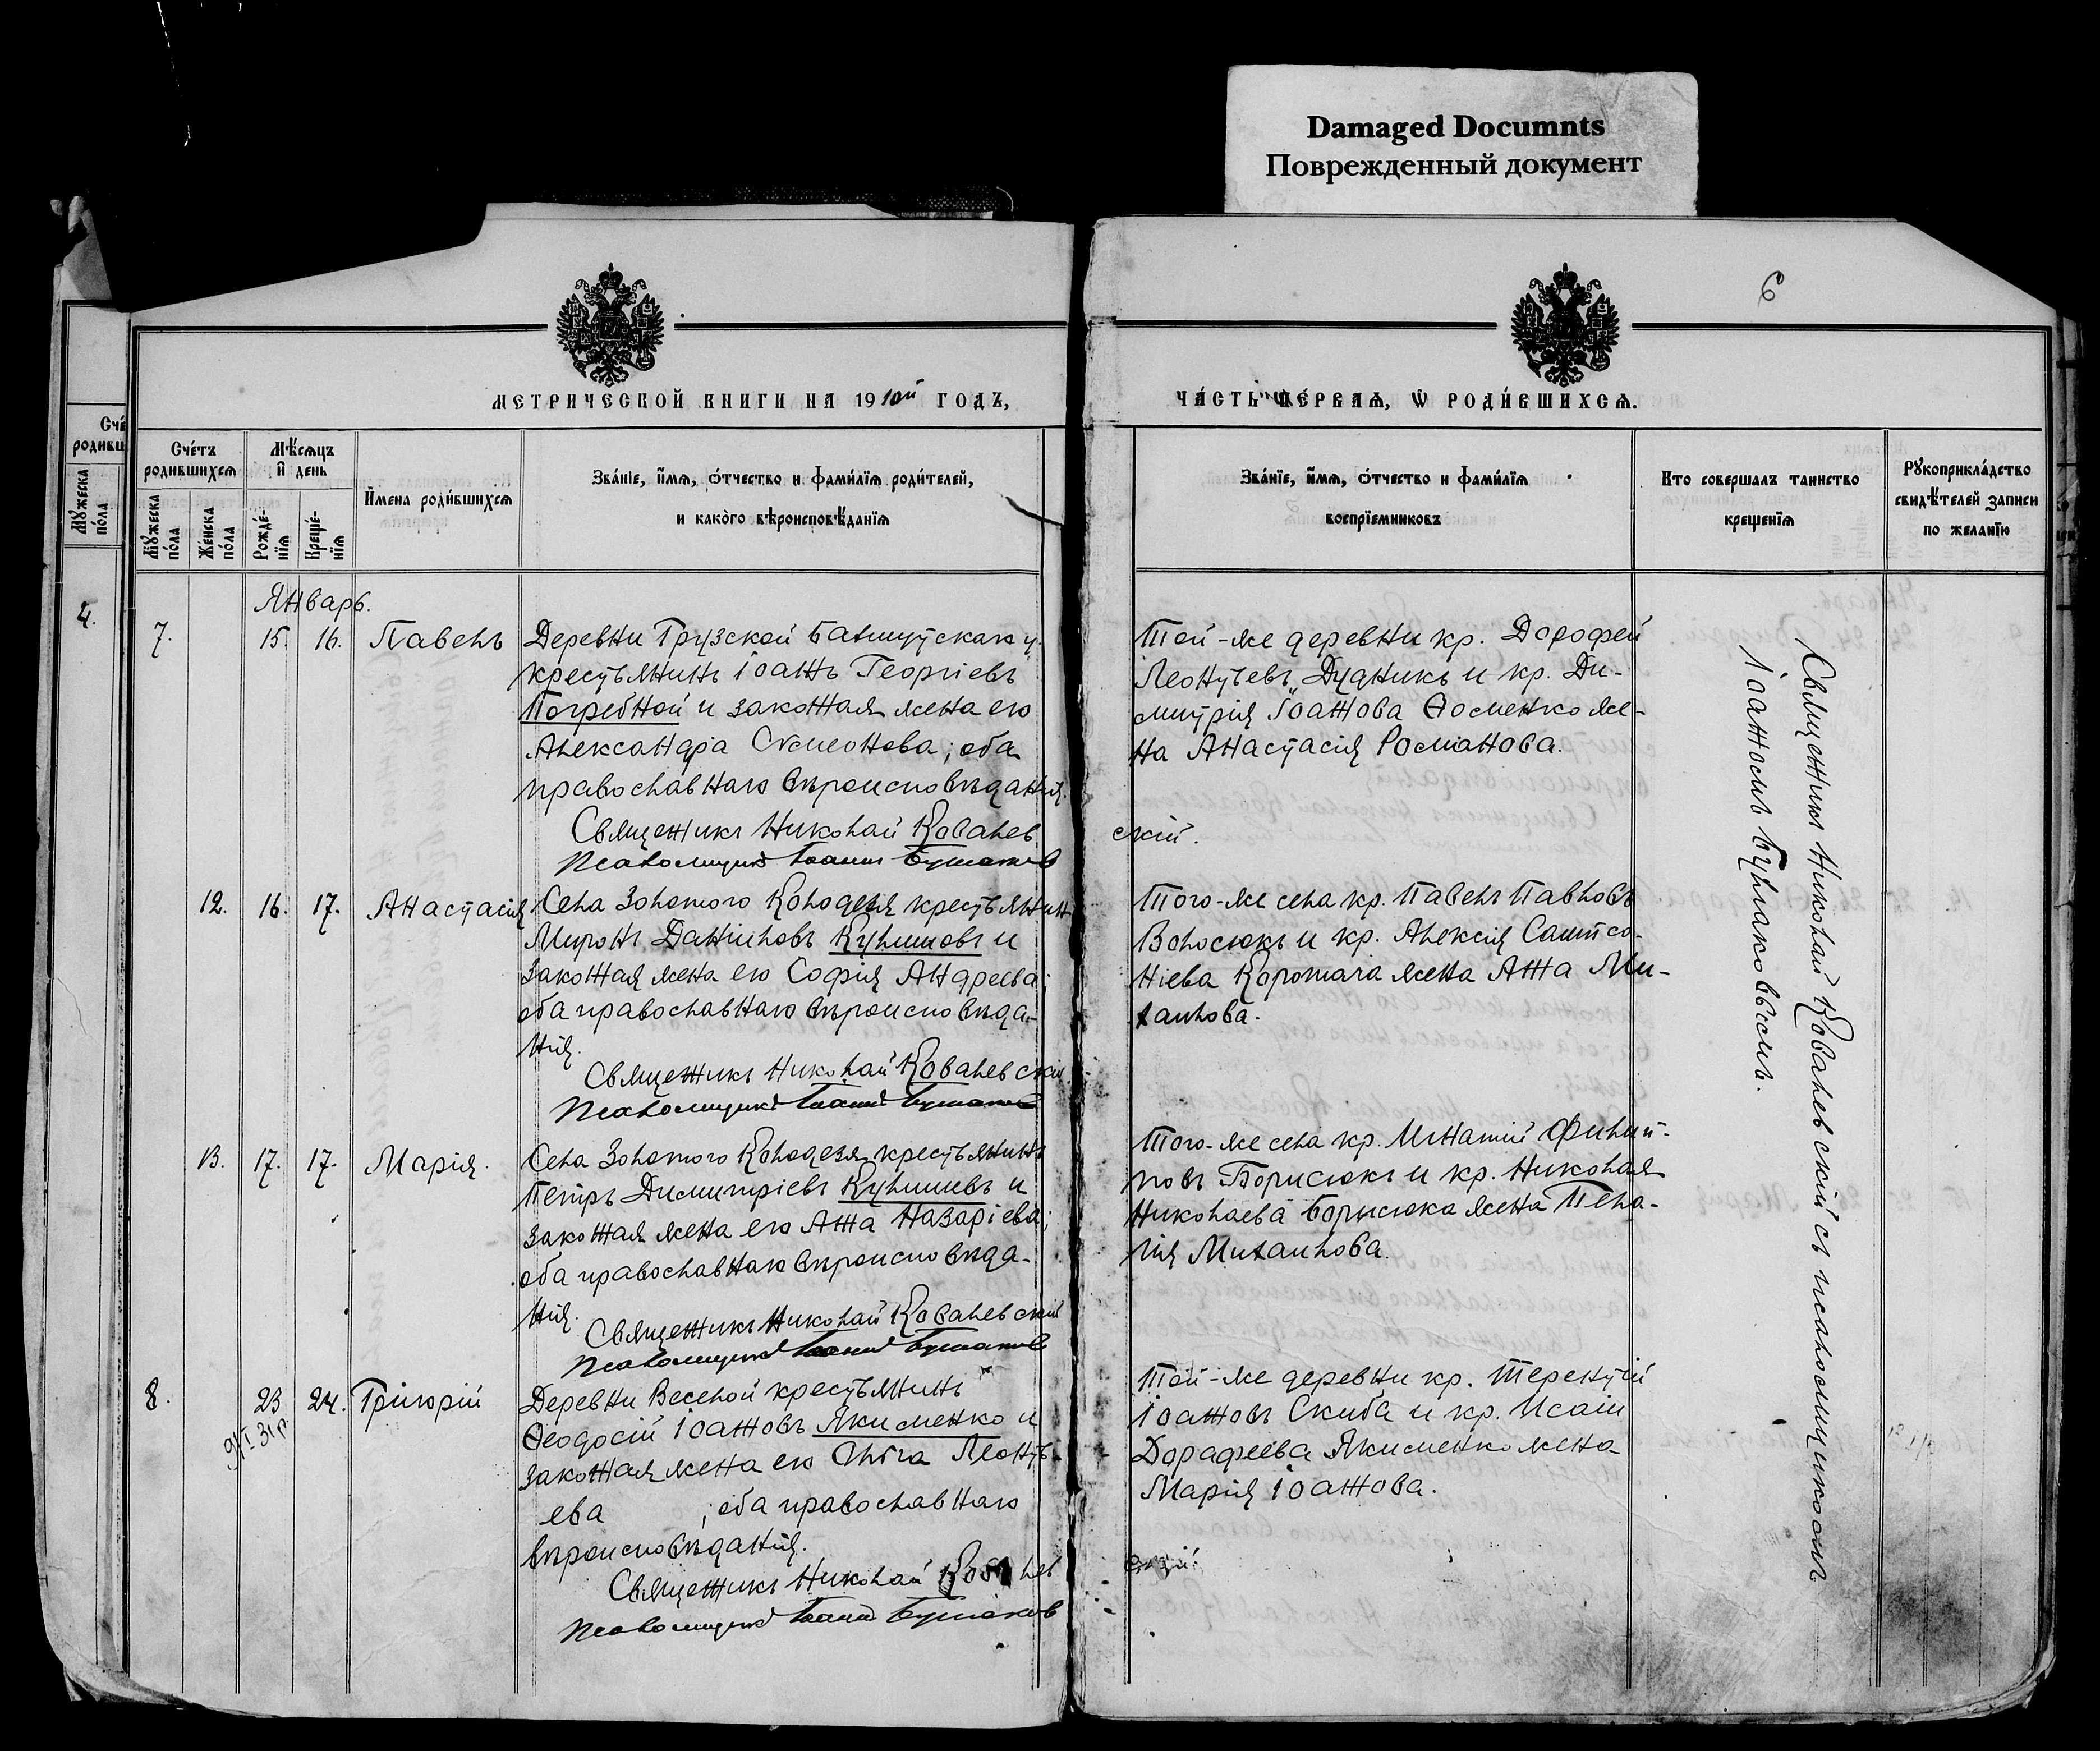 Damaged Documnts
Поврежденный документ
6
МЕТРИЧЕСКОЙ КНИГИ НА 1910й ГОДЪ,
ЧАСТЬ ПЕРВАЯ, Ѡ РОДИВШИХСЯ.
Счетъ родившихся
Мужеска пола
Женска пола
Мѣсяцъ и день
Рожденія
Крещенія
Имена родившихся
Званіе, имя, отчество и фамилія родителей,
и какого вѣроисповѣданія
Званіе, имя, отчество и фамилія
воспріемниковъ
Кто совершалъ таинство
крещенія
Рукоприкладство
свидѣтелей записи
по желанію
Мужеска пола
4.
Январь.
7. 15. 16. Павелъ
Деревни Грузской Бахмутскаго у.
крестьянинъ Іоаннъ Георгіевъ
Погребной и законная жена его
Александра Сѵмеонова; оба
православнаго вѣроисповѣданія.
Священникъ Николай Ковалев
Псаломщикъ Іоаннъ
Той-же деревни кр. Дорофей
Леонтьевъ Дудникъ и кр. Ди-
митрія Іоаннова Ѳоменко же-
на Анастасія Романова.
скій.
12. 16. 17. Анастасія
Села Золотого Колодезя крестьянин
Миронъ Даніиловъ Кулишовъ и
законная жена его Софія Андреева;
оба православнаго вѣроисповѣда-
нія.
Священникъ Николай Ковалевскій
Псаломщикъ Іоаннъ
Того-же села кр. Павелъ Павловъ
Волосюкъ и кр. Алексія Сампсо-
ніева Коротича жена Анна Ми-
хаилова.
13. 17. 17. Марія.
Села Золотого Колодезя крестьянинъ
Петръ Димитріевъ Кулишевъ и
законная жена его Анна Назаріева;
оба православнаго вѣроисповѣда-
нія.
Священникъ Николай Ковалевскій
Псаломщикъ Іоаннъ
Того-же села кр. Игнатій Филип-
повъ Борисюкъ и кр. Николая
Николаева Борисюка жена Пела-
гія Михаилова.
8. 23 24. Григорій
Деревни Веселой крестьянинъ
Ѳеодосій Іоанновъ Якименко и
законная жена его Ольга Леонть-
ева ; оба православнаго
вѣроисповѣданія.
Священникъ Николай Ковалев
Псаломщикъ Іоаннъ
Той-же деревни кр. Терентій
Іоанновъ Скиба и кр. Исаіи
Дорафеева Якименко жена
Марія Іоаннова.
скій.
Священникъ Николай Ковалевскій съ псаломщикомъ
Іоанномъ